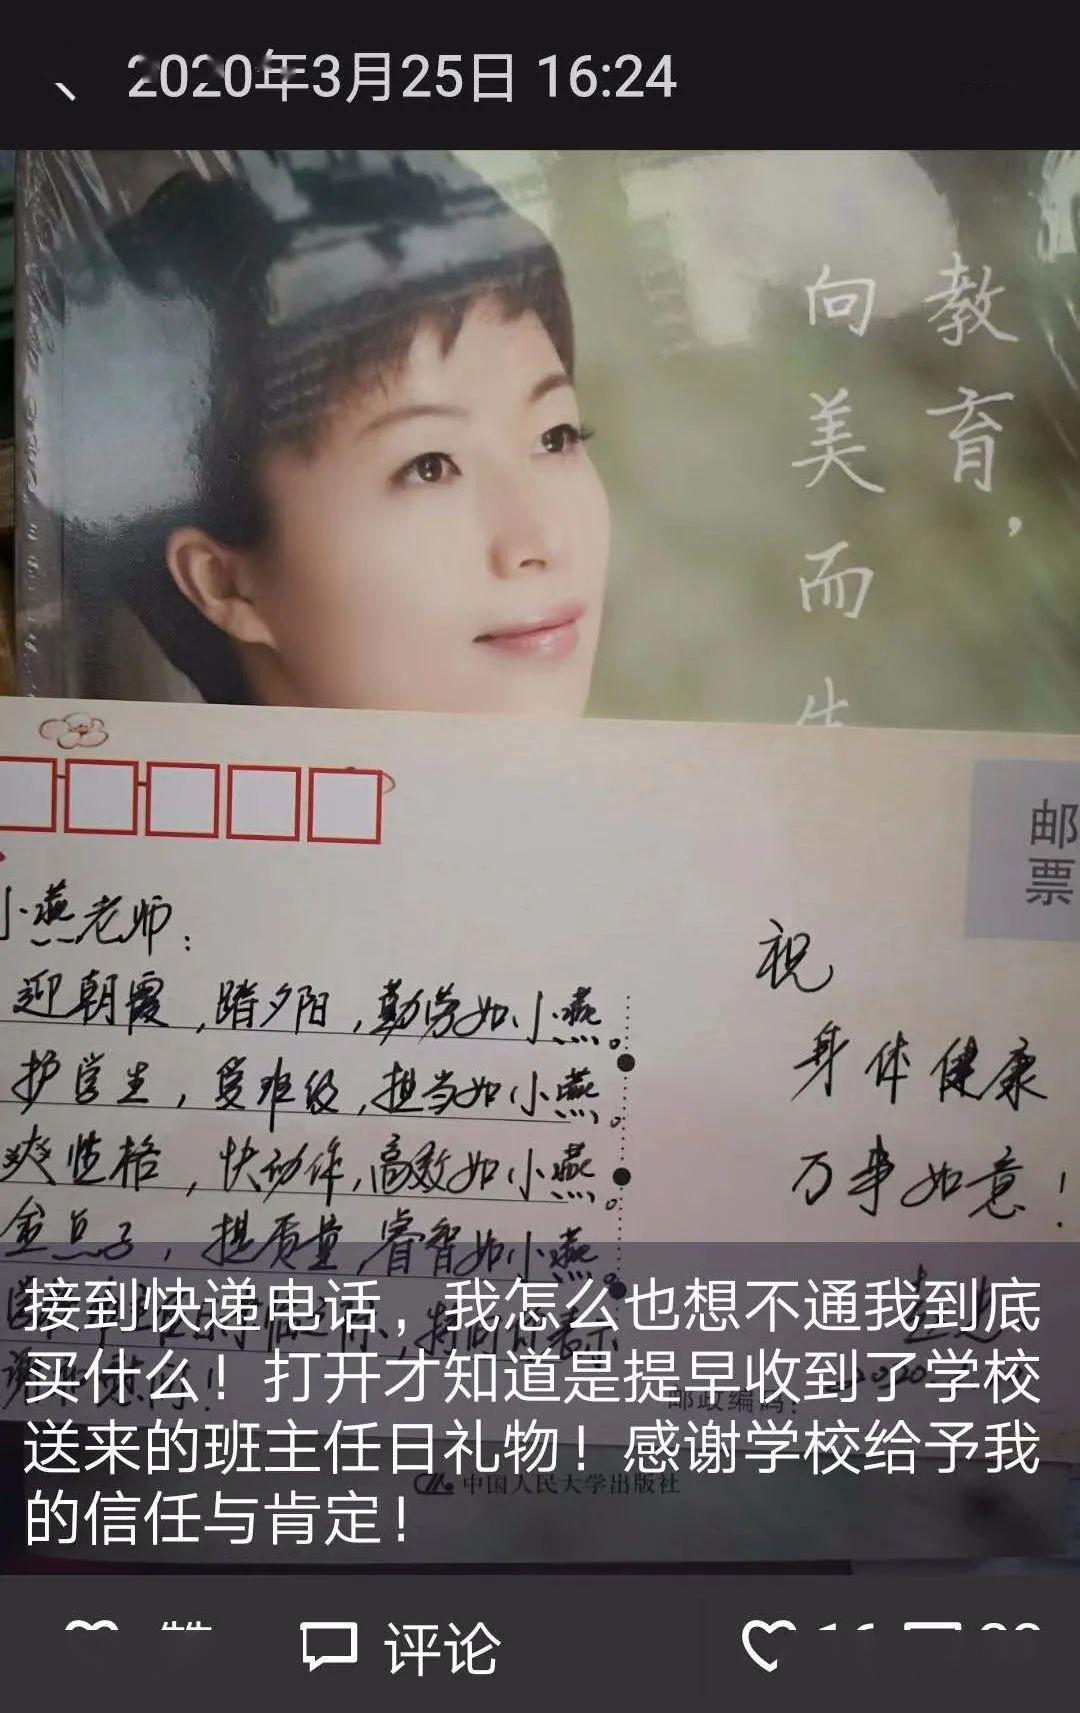 2020年3月25日 16:24
教育，
向美而生
邮票
小燕老师：
迎朝霞，踏夕阳，勤劳如小燕。
护学生，爱班级，担当如小燕。
爽性格，快动作，高效如小燕。
金点子，提质量，睿智如小燕。
祝
身体健康
万事如意！
邮政编码：
中国人民大学出版社
接到快递电话，我怎么也想不通我到底
买什么！打开才知道是提早收到了学校
送来的班主任日礼物！感谢学校给予我
的信任与肯定！
赞
评论